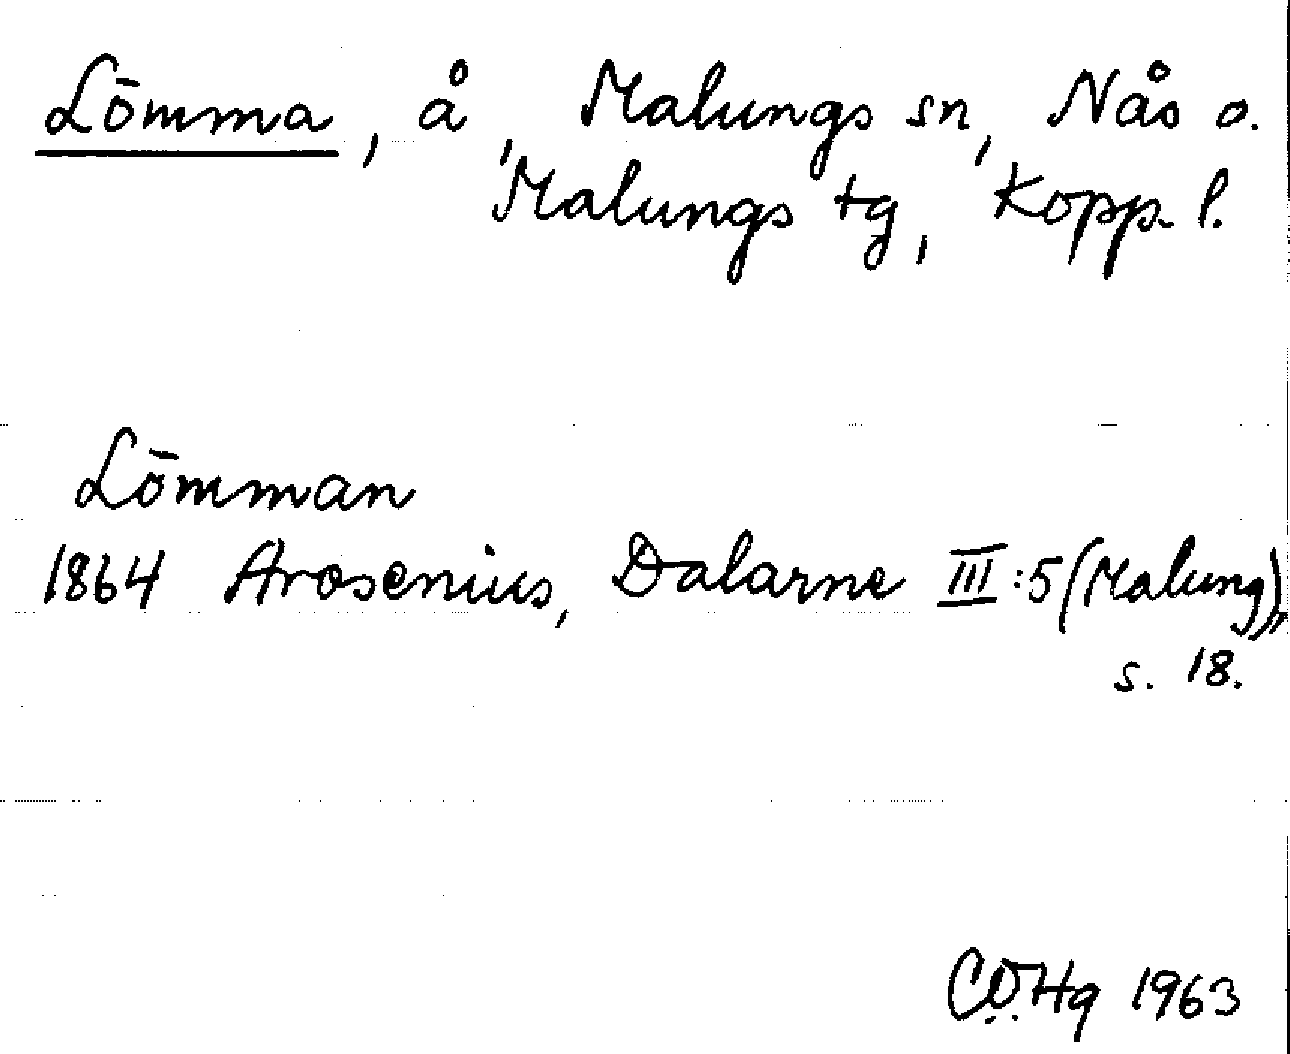 Lömma, å, Malungs sn, Nås o.
Malungs tg, Kopp. l.
Lömman
1864 Arosenius, Dalarne III:5 (Malung),
s. 18.
C.Ö.Hg 1963